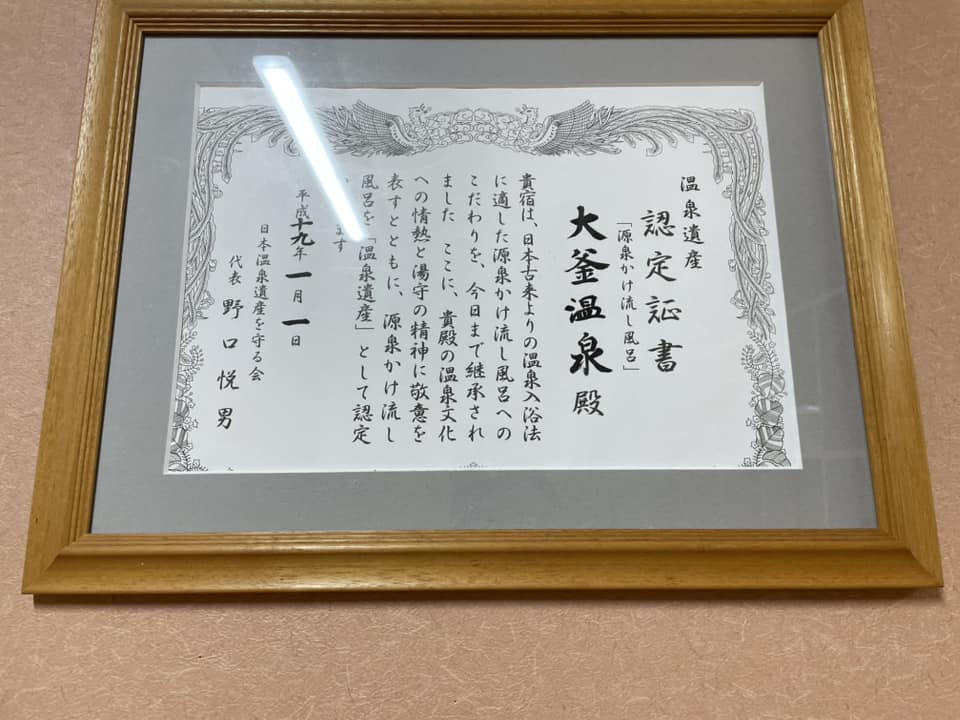 温泉遺産
認定証書
「源泉かけ流し風呂」
大釜温泉殿
貴宿は、日本古来よりの温泉入浴法
に適した源泉かけ流し風呂への
こだわりを、今日まで継承され
ました ここに、貴殿の温泉文化
への情熱と湯守の精神に敬意を
表すとともに、源泉かけ流し
風呂を「温泉遺産」として認定
ます
平成十九年一月一日
日本温泉遺産を守る会
代表 野口悦男